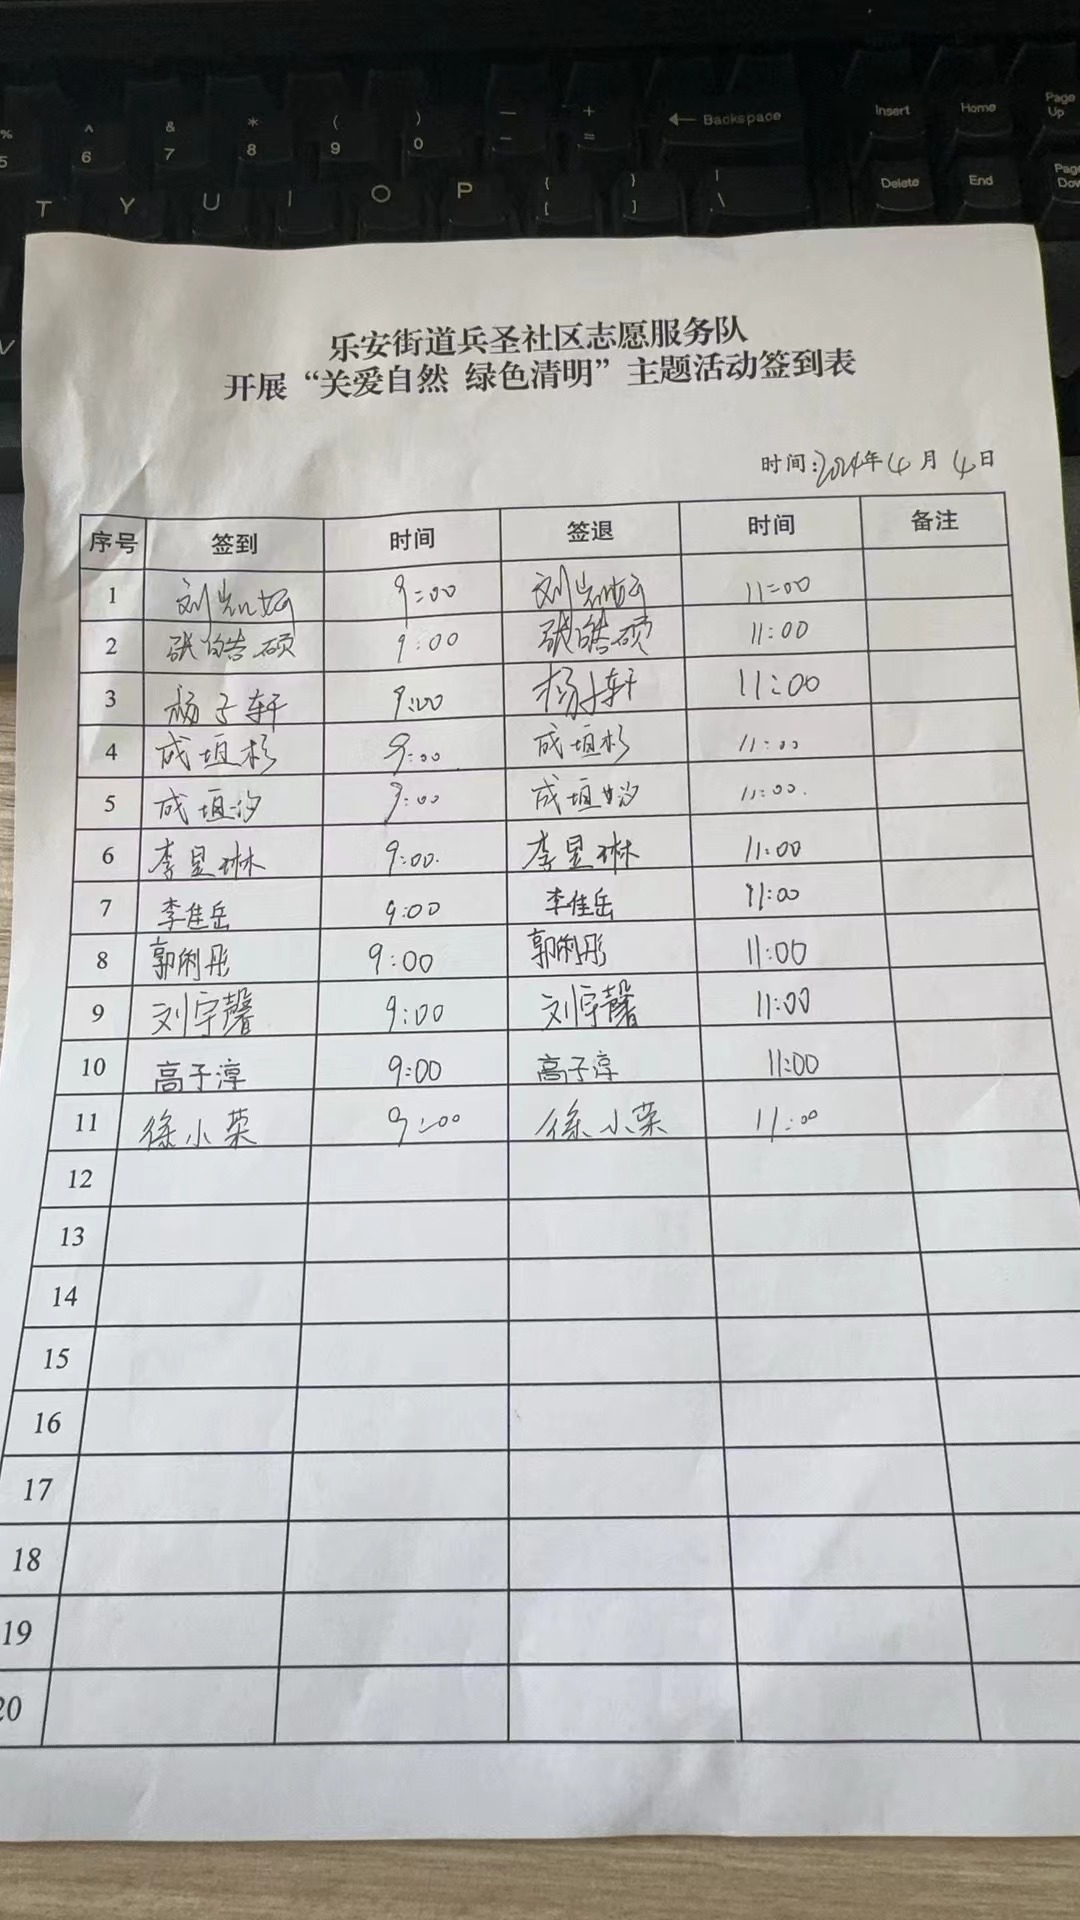 % 5 ^ 6 & 7 * 8 ( 9 ) 0 — - + = Backspace Insert Home Page Up
T Y U I O P { [ } ] | \ Delete End Page
乐安街道兵圣社区志愿服务队
开展“关爱自然 绿色清明”主题活动签到表
时间:2024年4月4日
序号 签到 时间 签退 时间 备注
1 刘 9:00 刘 11:00
2 张皓硕 9:00 张皓硕 11:00
3 杨子轩 9:00 杨子轩 11:00
4 成垣杉 9:00 成垣杉 11:00
5 成垣汐 9:00 成垣 11:00.
6 李昱琳 9:00. 李昱琳 11:00
7 李佳岳 9:00 李佳岳 11:00
8 郭俐彤 9:00 郭俐彤 11:00
9 刘宇馨 9:00 刘宇馨 11:00
10 高子淳 9:00 高子淳 11:00
11 徐小荣 9:00 徐小荣 11:00
12
13
14
15
16
17
18
19
20